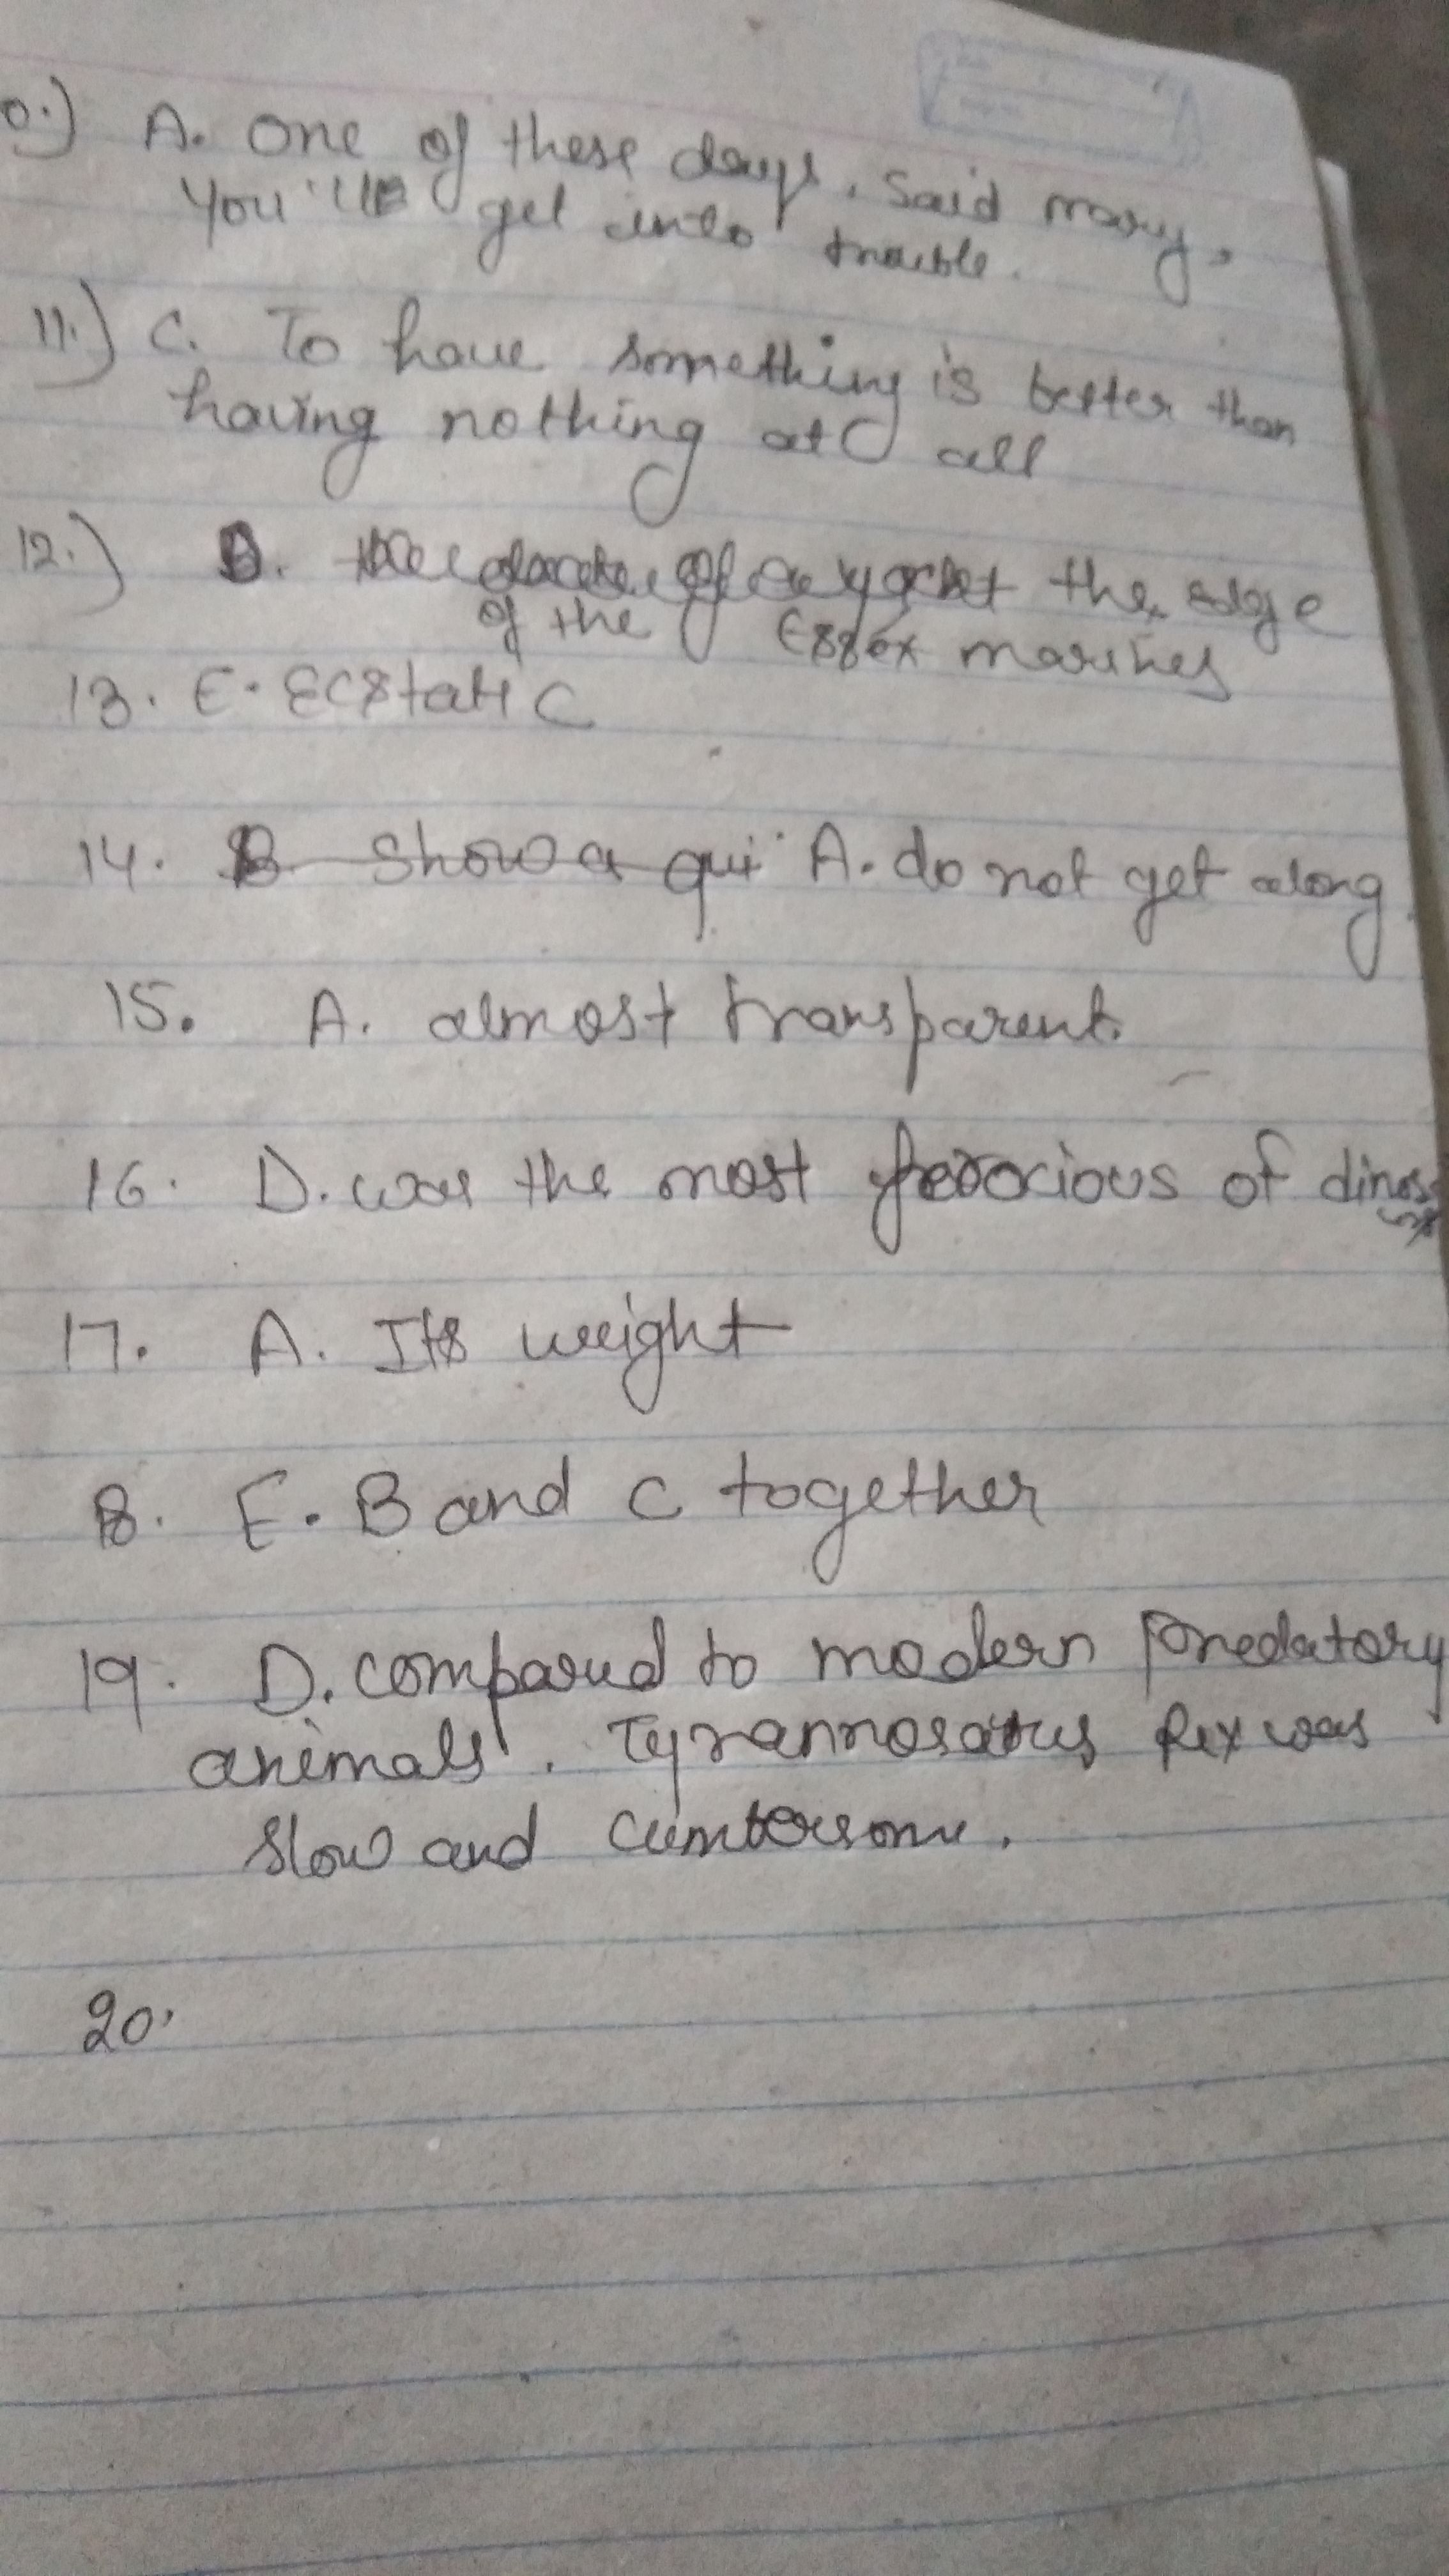 0.) A. One of these days, said mary,
You'll get into trouble.
11.) C. To have something is better than
having nothing at all
12.) D. the edge
of the Essex marshes
13. E. Ecstatic
14. B Show a qui A. do not get along
15. A. almost transparent.
16. D. was the most ferocious of dinos
17. A. Its weight
18. E. B and C together
19. D. compared to modern predatory
animals. Tyrannosaurus Rex was
slow and cumbersome.
20.